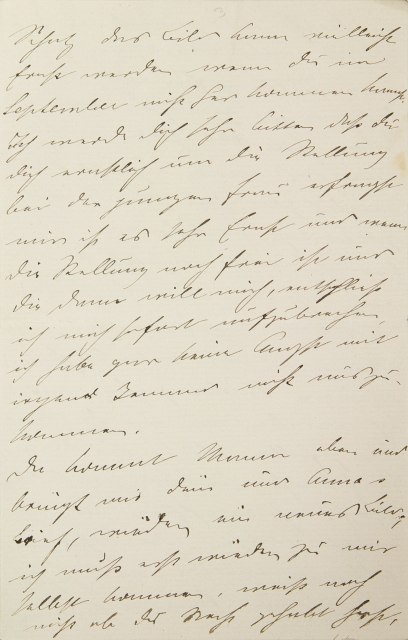 Schutz das Eile kann vielleicht
ernst werden wenn du im
September nicht her kommen kannst.
Ich werde dich sehr bitten daß du
dich ernstlich um die Stellung
bei der jungen Frau erfragst
mir ist es sehr Ernst und wenn
die Stellung noch frei ist und
die Dame will mich, entschließe
ich mich sofort aufzubrechen,
ich habe gar keine Angst mit
irgend Jemand nicht auszu-
kommen.
Da kommt Mama eben und
bringt mir dein und Anna's
Brief, wieder ein neues
ich muß erst wieder zu mir
selbst kommen, weiß noch
nicht ob du Recht gehabt hast,